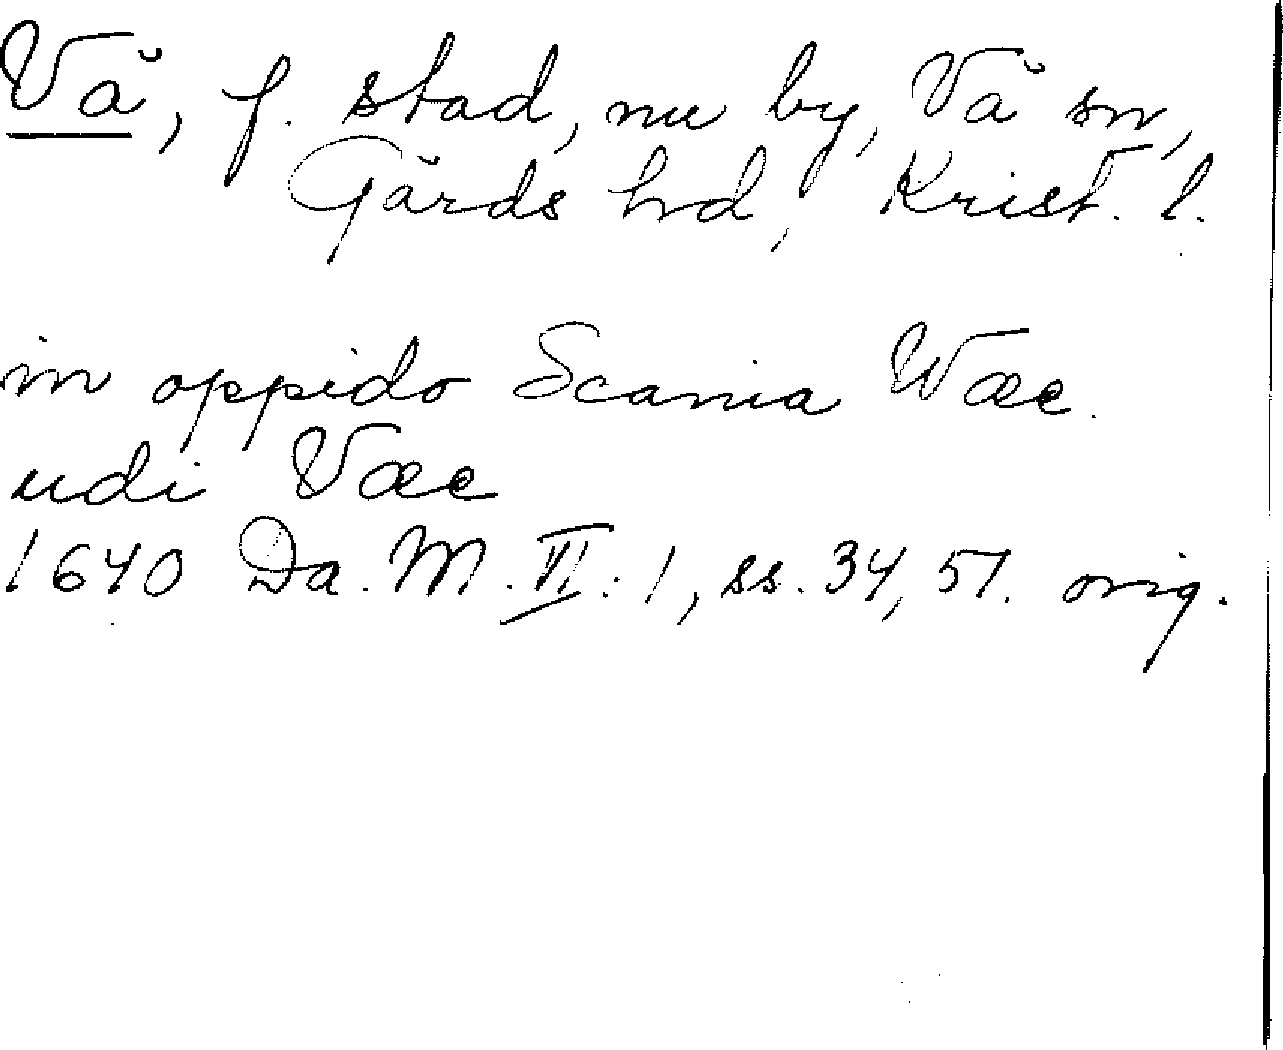 Vă, f. stad, nu by, Vă sn,
Gărds hd, Krist. l.
in oppido Scania Wæe.
udi Væe
1640 Da. M. VI: 1, ss. 34, 51. orig.